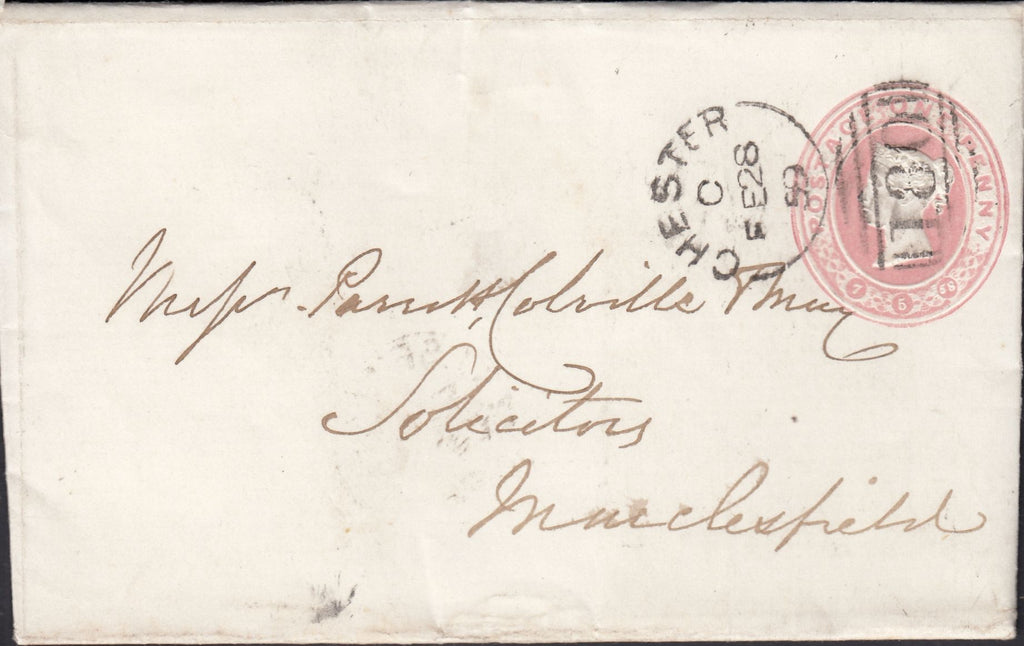 CHESTER
C
FE 28
59
POSTAGE ONE PENNY
180
7 5 58
Messrs Parrott, Colville & May
Solicitors
Macclesfield